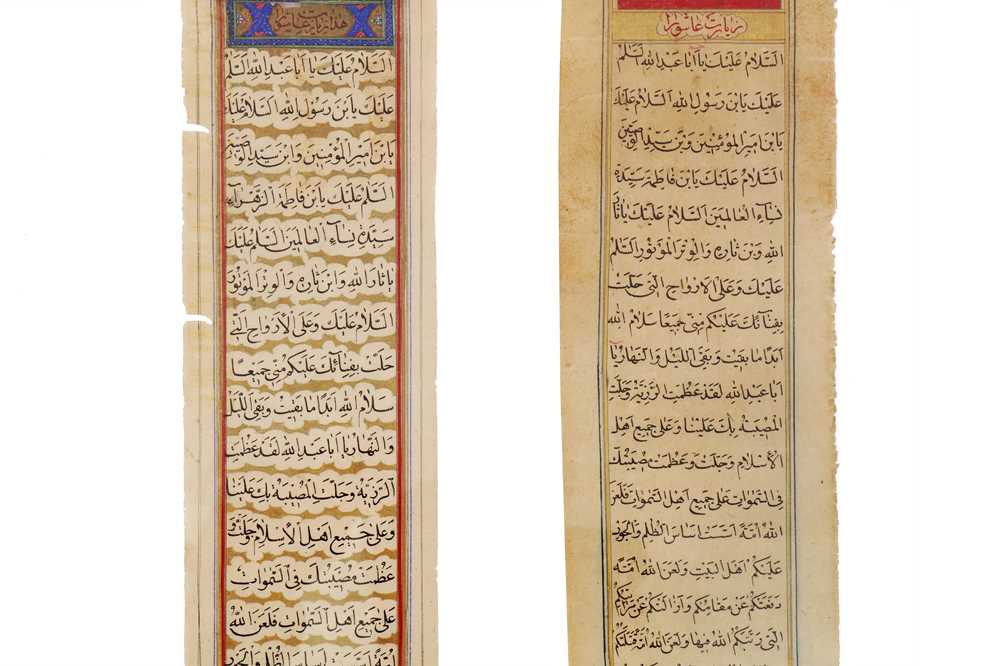 هذا زيارت عاشورا
السَّلامُ عَلَيْكَ يا اَبا عَبدِ اللهِ السَّلَمُ
عَلَيْكَ يَابْنَ رَسُولِ اللهِ السَّلامُ عَلَيْكَ
يَابْنَ اَميرِ المُؤمِنينَ وَابْنَ سَيِّدِ الوَصِيّينَ
السَّلَمُ عَلَيْكَ يَابْنَ فاطِمَةَ الزَّهْراءِ
سَيِّدَةِ نِساءِ العالَمينَ السَّلَمُ عَلَيْكَ
يا ثارَ اللهِ وَابْنَ ثارِهِ وَالوِترَ المَوْتُورَ
السَّلامُ عَلَيْكَ وَعَلَى الأَرْواحِ الَّتي
حَلَّتْ بِفِنائِكَ عَلَيْكُم مِنّي جَميعًا
سَلامُ اللهِ اَبَدًا ما بَقيتُ وَبَقِيَ اللَّيْلُ
وَالنَّهارُ يا اَبا عَبدِ اللهِ لَقَد عَظُمَتِ
الرَّزِيَّةُ وَجَلَّتِ المُصيبَةُ بِكَ عَلَيْنا
وَعَلى جَميعِ اَهْلِ الأِسْلامِ وَجَلَّتْ وَ
عَظُمَتْ مُصيبَتُكَ فِي السَّمٰواتِ
عَلى جَميعِ اَهْلِ السَّمٰواتِ فَلَعَنَ اللهُ
اُمَّةً اَسَّسَتْ اَساسَ الظُّلمِ وَالجَوْرِ
زيارت عاشورا
السَّلامُ عَلَيْكَ يا اَبا عَبدِ اللهِ السَّلمُ
عَلَيْكَ يَابنَ رَسُولِ اللهِ السَّلامُ عَلَيْكَ
يَابْنَ اَميرِ المُؤمِنينَ وَبْنَ سَيِّدِ الوَصِيّينَ
السَّلامُ عَلَيْكَ يَابْنَ فاطِمَةَ سَيِّدَةِ
نِساءِ العالَمينَ السَّلامُ عَلَيْكَ يا ثارَ
اللهِ وَبْنَ ثارِهِ وَالوِترَ المَوْتُورَ السَّلمُ
عَلَيْكَ وَعَلَى الأَرْواحِ الَّتي حَلَّتْ
بِفِنائِكَ عَلَيْكُم مِنّي جَميعًا سَلامُ اللهِ
اَبَدًا ما بَقيتُ وَبَقِيَ اللَّيْلُ وَالنَّهارُ يا
اَبا عَبدِ اللهِ لَقَد عَظُمَتِ الرَّزِيَّةُ وَجَلَّتِ
المُصيبَةُ بِكَ عَلَيْنا وَعَلى جَميعِ اَهْلِ
الأِسْلامِ وَجَلَّتْ وَعَظُمَتْ مُصيبَتُكَ
فِي السَّمٰواتِ عَلى جَميعِ اَهْلِ السَّمٰواتِ فَلَعَنَ
اللهُ اُمَّةً اَسَّسَتْ اَساسَ الظُّلمِ وَالجَوْرِ
عَلَيْكُم اَهْلَ البَيْتِ وَلَعَنَ اللهُ اُمَّةً
دَفَعَتْكُم عَن مَقامِكُم وَاَزالَتْكُم عَن مَراتِبِكُم
الَّتي رَتَّبَكُمُ اللهُ فيها وَلَعَنَ اللهُ اُمَّةً قَتَلَتْكُم